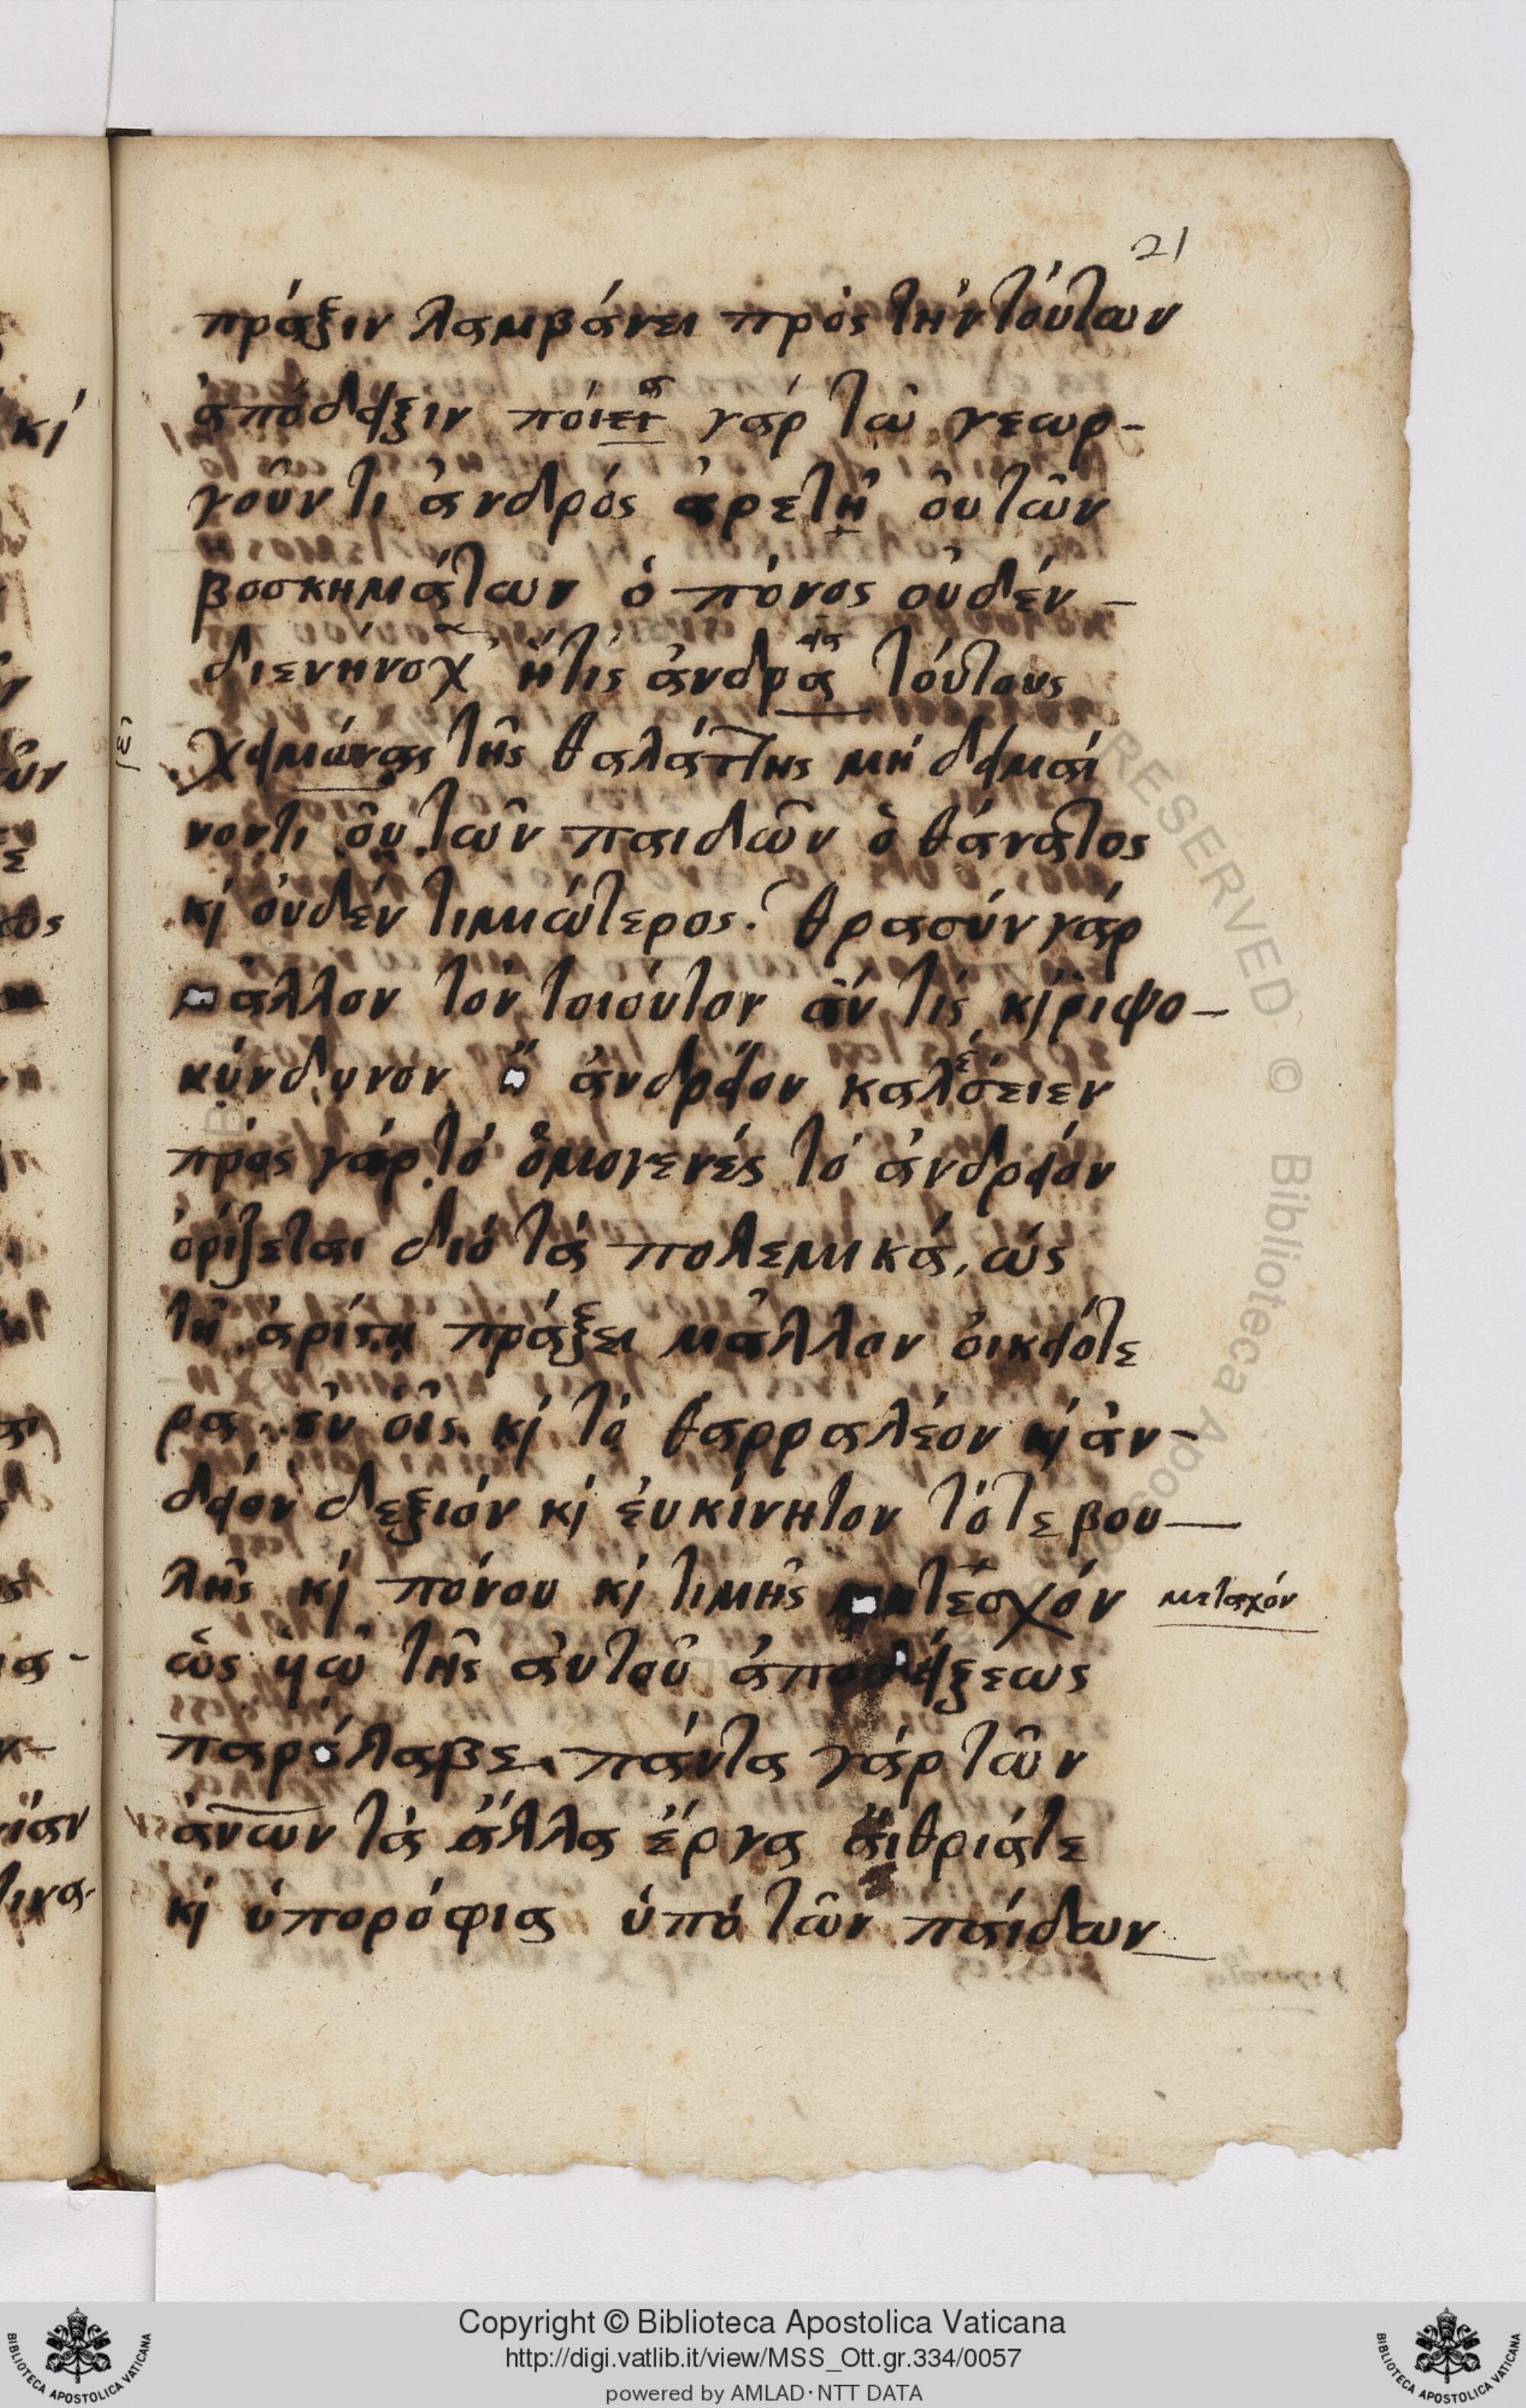 21
πράξιν λαμβάνει πρὸς τὴν τούτων
ἀπόδειξιν ποίει γάρ τῶ γεωρ-
γοῦντι ἀνδρός ἀρετή οὐ τῶν
βοσκημάτων ὁ πόνος οὐδέν -
διενήνοχ ἤτις ἀνδρ τούτους
χειμῶνας τῆς θαλάττης μή δειμαί
νοντι οὐ τῶν παιδῶν ὁ θάνατος
κὶ οὐδέν τιμιώτερος. θρασύν γάρ
μᾶλλον τόν τοιούτον ἄν τίς κὶ ριψο-
κύνδυνον ἤ ἀνδρεῖον καλέσειεν
πρός γάρ τό ὁμογενές τό ἀνδρεῖον
ὁρίζεται διό τά πολεμικά, ὡς
τῇ ἀρίστῃ πράξει μᾶλλον οἰκειότε
ρα ἐν οἷς κὶ τό θαρραλέον κὶ ἀν-
δρεῖον δεξιόν κὶ ἐυκίνητον τότε βου—
λῆς κὶ πόνου κὶ τιμῆς μετέσχόν
μετασχόν
ὡς τῆς αὐτοῦ ἀποδείξεως
παρέλαβε πάντα γάρ τῶν
ἀνων τὰ ἄλλα ἔργα αἴθριάτε
κὶ ὑπορόφια ὑπό τῶν παίδων
RESERVED © Biblioteca Apos
Copyright © Biblioteca Apostolica Vaticana
http://digi.vatlib.it/view/MSS_Ott.gr.334/0057
powered by AMLAD·NTT DATA
BIBLIOTECA APOSTOLICA VATICANA
BIBLIOTECA APOSTOLICA VATICANA